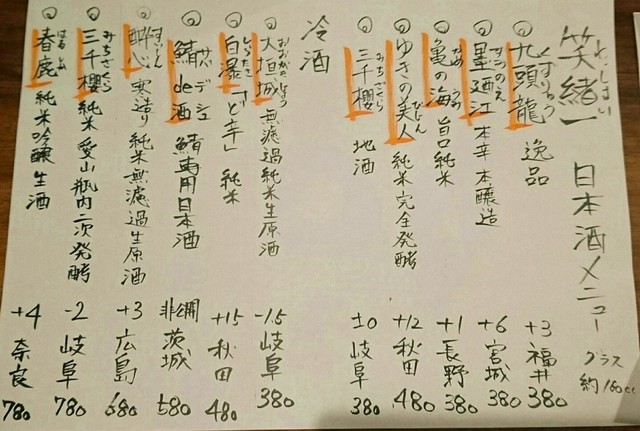 笑緒一 日本酒メニュー
グラス
約160cc
◎九頭龍 逸品 +3 福井 380
くずりゅう
◎墨廼江 本辛 本醸造 +6 宮城 380
すみのえ
◎亀の海 旨口純米 +1 長野 380
かめ うみ
◎ゆきの美人 純米 完全発酵 +12 秋田 480
びじん
◎三千櫻 地酒 ±0 岐阜 380
みちざくら
冷酒
◎大垣城 無濾過純米生原酒 -1.5 岐阜 380
おおがきじょう
◎白瀑 「ど辛」 純米 +15 秋田 480
しらたき
◎鯖de酒 鯖専用日本酒 非公開 茨城 580
さば デ シュ
◎酔心 寒造り 純米無濾過生原酒 +3 広島 680
すいしん
◎三千櫻 純米 愛山 瓶内二次発酵 -2 岐阜 780
みちざくら
◎春鹿 純米吟醸 生酒 +4 奈良 780
はるしか